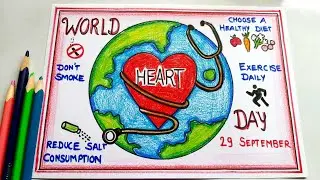 WORLD
CHOOSE A
HEALTHY DIET
DON'T
SMOKE
HEART
EXERCISE
DAILY
DAY
REDUCE SALT
CONSUMPTION
29 SEPTEMBER